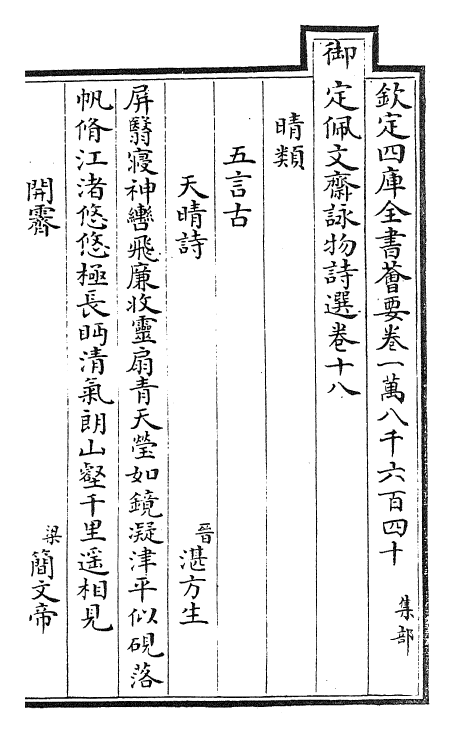 欽定四庫全書薈要卷一萬八千六百四十　集部
御定佩文齋詠物詩選卷十八
晴類
五言古
天晴詩　晉湛方生
屏翳寢神轡飛廉收靈扇青天瑩如鏡凝津平似硯落
帆脩江渚悠悠極長眄清氣朗山壑千里遥相見
開霽　梁簡文帝